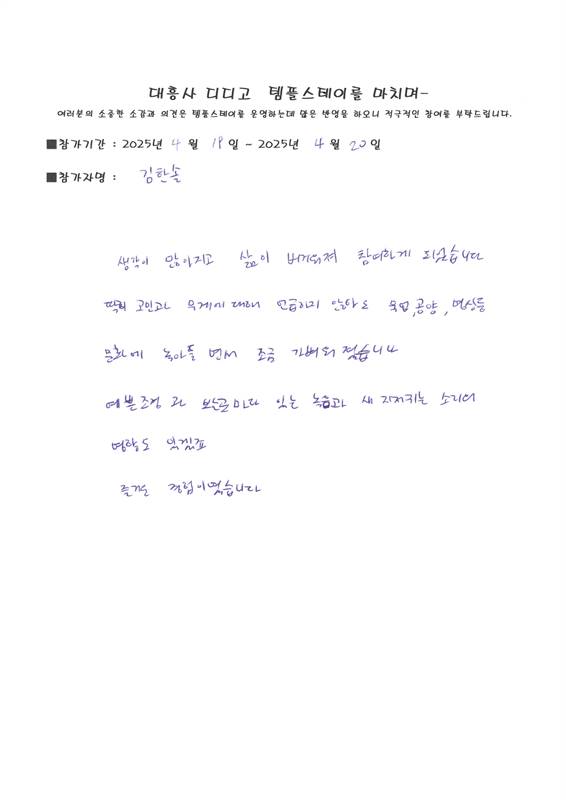 대흥사 디디고 템플스테이를 마치며-
여러분의 소중한 소감과 의견은 템플스테이를 운영하는데 많은 반영을 하오니 적극적인 참여를 부탁드립니다.
■참가기간 : 2025년 4월 19일 ~ 2025년 4월 20일
■참가자명 : 김한솔
생각이 많아지고 삶이 버거워져 참여하게 되었습니다
딱히 고민과 무게에 대해 언급하지 않아도 공양, 명상등
문화에 녹아들면서 조금 가벼워졌습니다
예쁜 조경과 있는 녹음과 새 지저귀는 소리의
영향도 있겠죠
즐거운 경험이였습니다